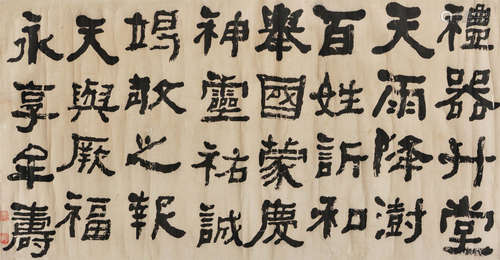 禮器升堂
天雨降澍
百姓訢和
舉國蒙慶
神靈祐誠
竭敬之報
天與厥福
永享牟壽